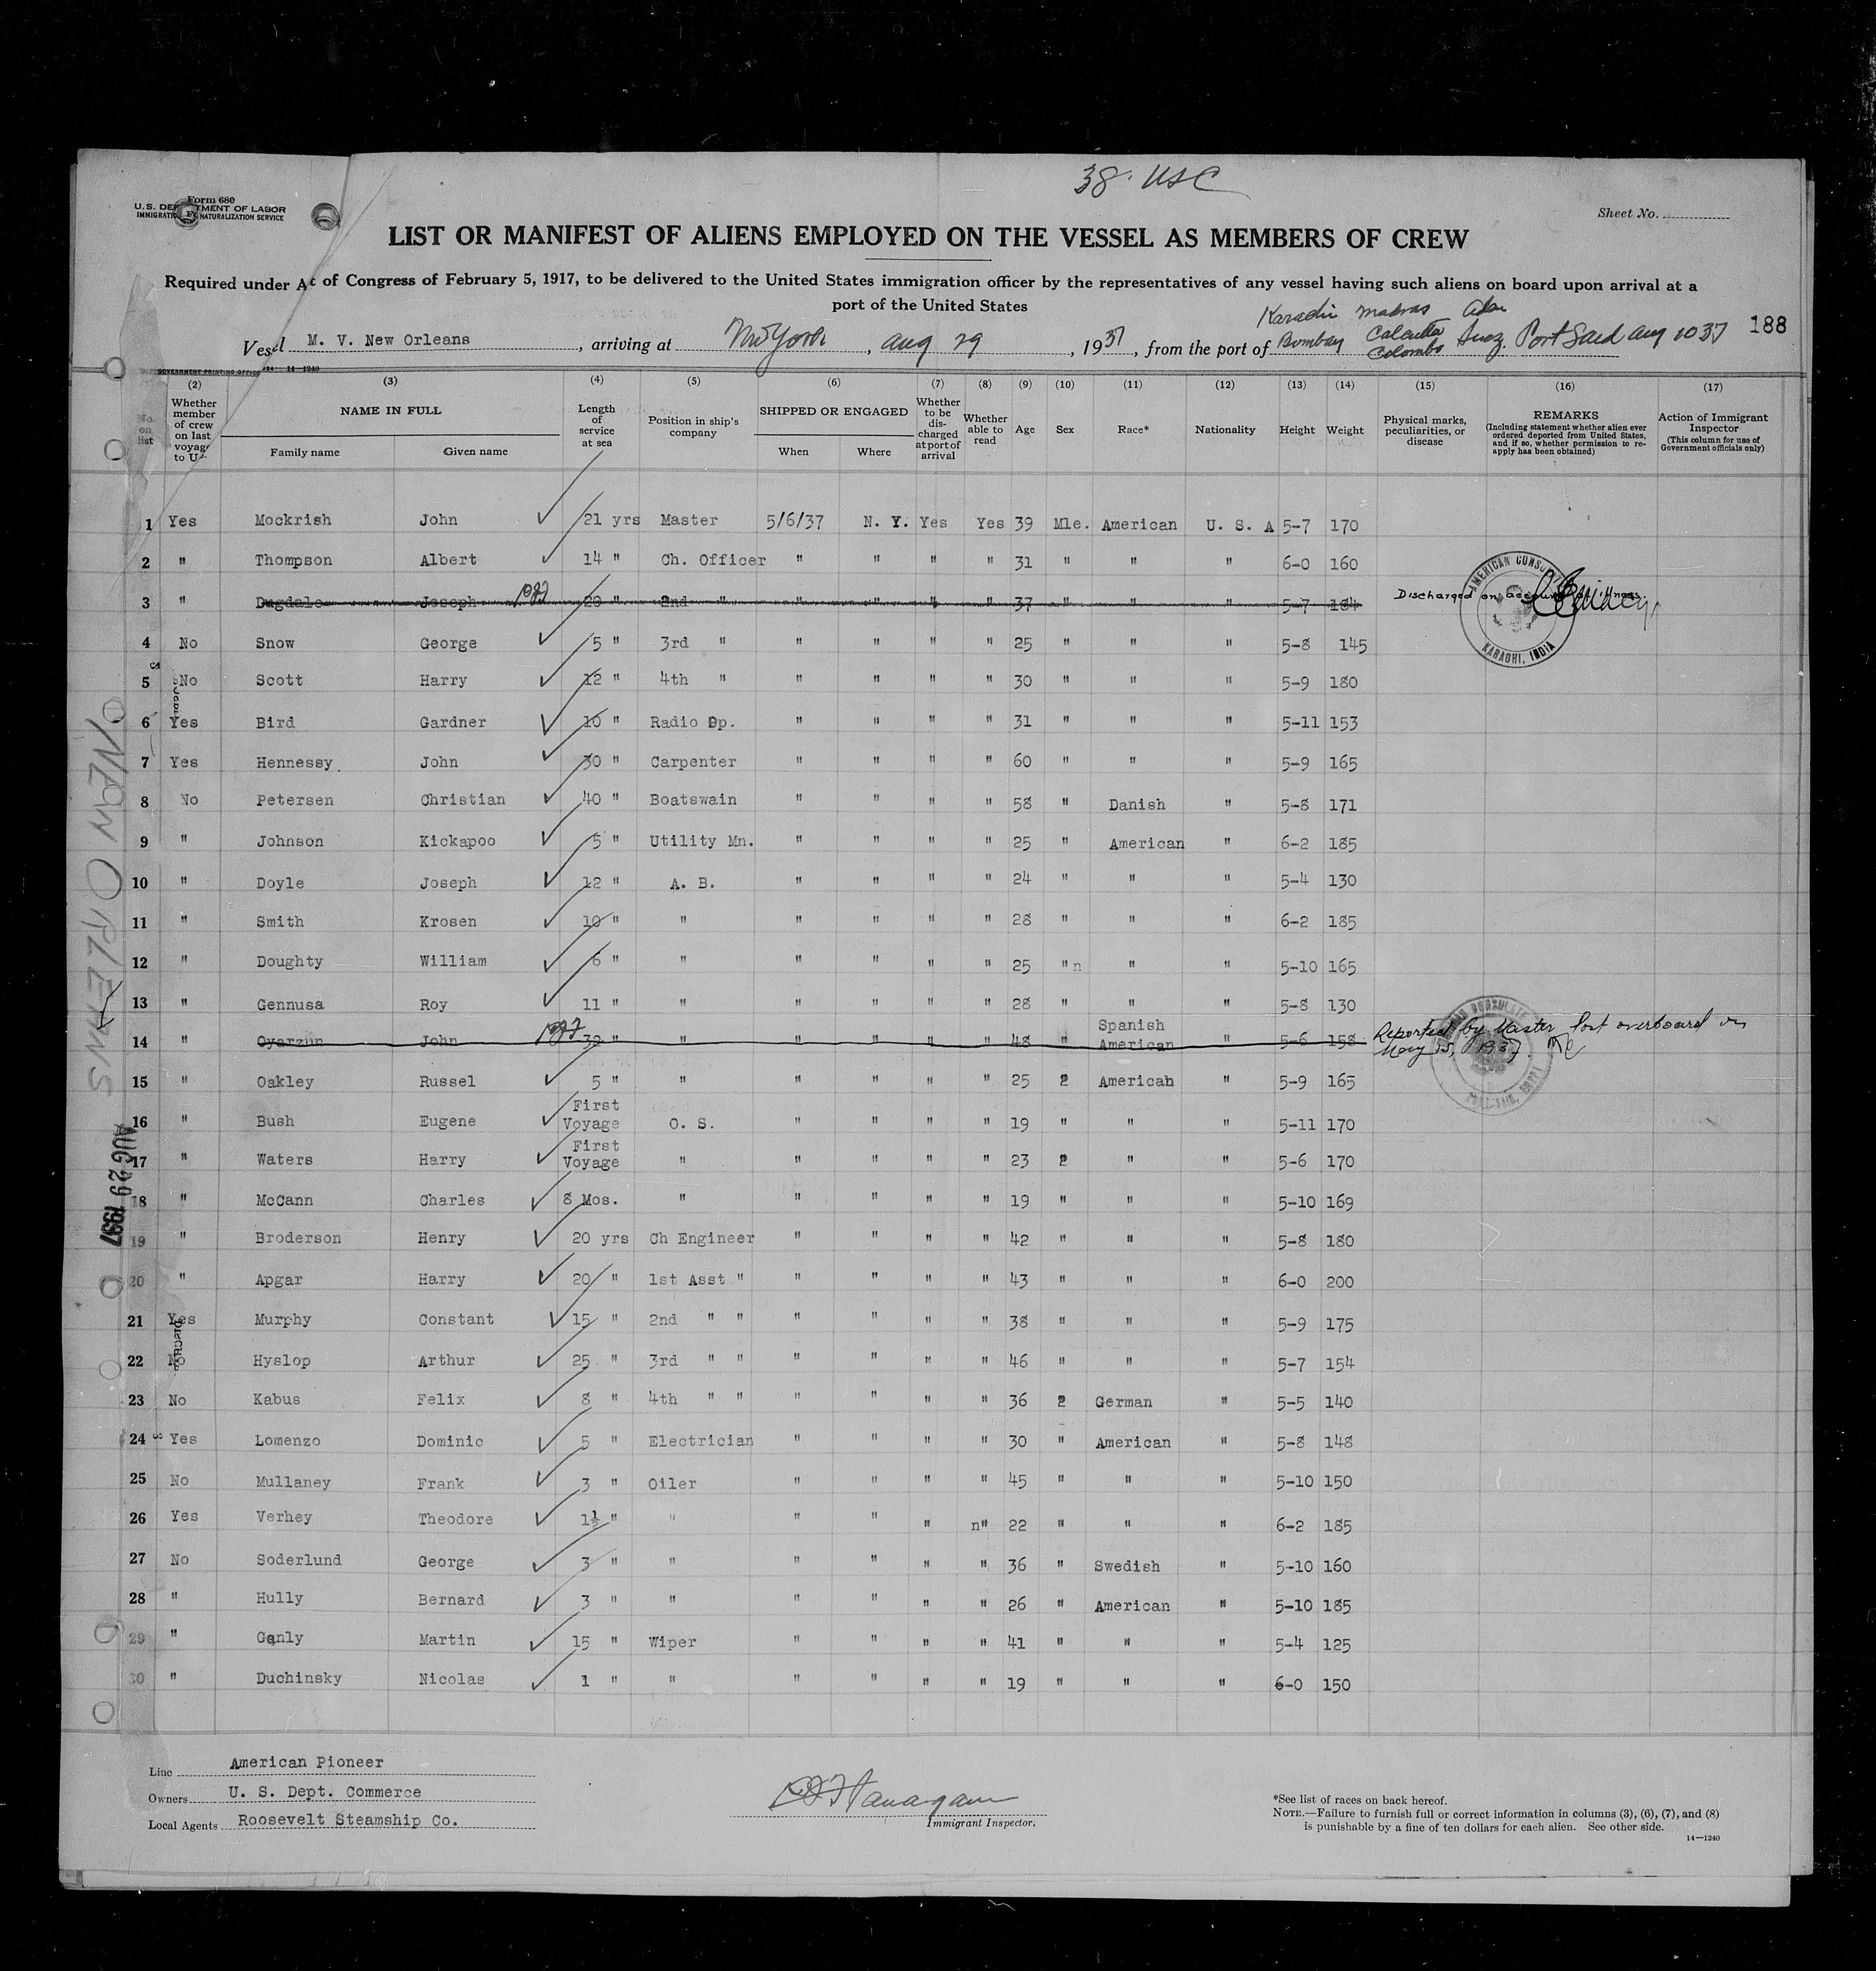 38. USC
Form 680
U. S. DEPARTMENT OF LABOR
IMMIGRATION NATURALIZATION SERVICE
Sheet No.
LIST OR MANIFEST OF ALIENS EMPLOYED ON THE VESSEL AS MEMBERS OF CREW
Required under Act of Congress of February 5, 1917, to be delivered to the United States immigration officer by the representatives of any vessel having such aliens on board upon arrival at a
port of the United States
Karachi Madras Aden
Vessel M. V. New Orleans, arriving at New York, Aug 29, 1937, from the port of Bombay Calcutta Colombo Suez Port Said Aug 10 37 188
(2) (3) (4) (5) (6) (7) (8) (9) (10) (11) (12) (13) (14) (15) (16) (17)
No. on list
Whether member of crew on last voyage to U.
NAME IN FULL
Family name Given name
Length of service at sea
Position in ship's company
SHIPPED OR ENGAGED
When Where
Whether to be discharged at port of arrival
Whether able to read
Age Sex Race* Nationality Height Weight
Physical marks, peculiarities, or disease
REMARKS
(Including statement whether alien ever ordered deported from United States, and if so, whether permission to reapply has been obtained)
Action of Immigrant Inspector
(This column for use of Government officials only)
1 Yes Mockrish John 21 yrs Master 5/6/37 N. Y. Yes Yes 39 Mle. American U. S. A 5-7 170
2 " Thompson Albert 14 " Ch. Officer " " " " 31 " " " 6-0 160
3 " Dugdale Joseph 20 " 2nd " " " " " 37 " " " 5-7 184 Discharged on account of illness.
AMERICAN CONSU
KARACHI, INDIA
4 No Snow George 5 " 3rd " " " " " 25 " " " 5-8 145
5 No Scott Harry 12 " 4th " " " " " 30 " " " 5-9 180
6 Yes Bird Gardner 10 " Radio Op. " " " " 31 " " " 5-11 153
7 Yes Hennessy John 30 " Carpenter " " " " 60 " " " 5-9 165
8 No Petersen Christian 40 " Boatswain " " " " 58 " Danish " 5-8 171
9 " Johnson Kickapoo 5 " Utility Mn. " " " " 25 " American " 6-2 185
10 " Doyle Joseph 12 " A. B. " " " " 24 " " " 5-4 130
11 " Smith Krosen 10 " " " " " " 28 " " " 6-2 185
12 " Doughty William 6 " " " " " " 25 "n " " 5-10 165
13 " Gennusa Roy 11 " " " " " " 28 " " " 5-8 130
14 " Oyarzun John 32 " " " " " " 48 " Spanish American " 5-6 158 Reported by Master lost overboard on
May 15, 1937.
15 " Oakley Russel 5 " " " " " " 25 2 American " 5-9 165
16 " Bush Eugene First Voyage O. S. " " " " 19 " " " 5-11 170
17 " Waters Harry First Voyage " " " " " 23 2 " " 5-6 170
18 " McCann Charles 8 Mos. " " " " " 19 " " " 5-10 169
19 " Broderson Henry 20 yrs Ch Engineer " " " " 42 " " " 5-8 180
20 " Apgar Harry 20 " 1st Asst " " " " " 43 " " " 6-0 200
21 Yes Murphy Constant 15 " 2nd " " " " " " 38 " " " 5-9 175
22 No Hyslop Arthur 25 " 3rd " " " " " " 46 " " " 5-7 154
23 No Kabus Felix 8 " 4th " " " " " " 36 2 German " 5-5 140
24 Yes Lomenzo Dominic 5 " Electrician " " " " 30 " American " 5-8 148
25 No Mullaney Frank 3 " Oiler " " " " 45 " " " 5-10 150
26 Yes Verhey Theodore 1½ " " " " " n" 22 " " " 6-2 185
27 No Soderlund George 3 " " " " " " 36 " Swedish " 5-10 160
28 " Hully Bernard 3 " " " " " " 26 " American " 5-10 185
29 " Ganly Martin 15 " Wiper " " " " 41 " " " 5-4 125
30 " Duchinsky Nicolas 1 " " " " " " 19 " " " 6-0 150
NEW ORLEANS
AUG 29 1937
Line American Pioneer
Owners U. S. Dept. Commerce
Local Agents Roosevelt Steamship Co.
Immigrant Inspector.
*See list of races on back hereof.
NOTE.—Failure to furnish full or correct information in columns (3), (6), (7), and (8)
is punishable by a fine of ten dollars for each alien. See other side.
14—1240